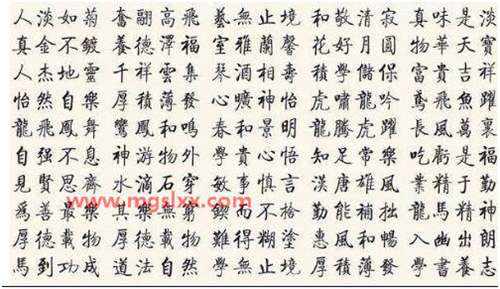 人淡如菊 奮翮高飛 藝無止境 和敬清寂 真味是淡
真金不鍍 養德澤福 室雅蘭馨 花好月圓 物華天寶
人杰地靈 千祥雲集 琴酒相壽 積學儲 富貴吉祥
怡然自樂 厚積薄發 心曠神怡 虎嘯龍吟 鳶飛魚躍
龍飛鳳舞 鸞鳳和鳴 春和景明 龍騰虎躍 長風萬裏
自强不息 神游物外 學貴心悟 知足常樂 吃虧是福
見賢思齊 水滴石穿 敏事慎言 漢唐雄風 業精于勤
www.mgslxx.com
爲善最樂 其樂無窮 鍥而不捨 勤能補拙 龍馬精神
厚德載物 厚德載物 難得糊塗 惠風和暢 入幽出朗
馬到功成 道法自然 學無止境 厚積薄發 學書養志